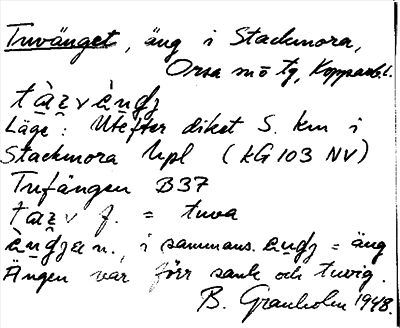 Tuvänget, äng i Stackmora,
Orsa sn ö tg, Kopparb. l.
Läge: Utefter diket S. km i
Stackmora hpl (kG 103 NV)
Tufängen B37
f. = tuva
n., i sammans. = äng
Ängen var förr sank och tuvig.
B. Granholm 1948.